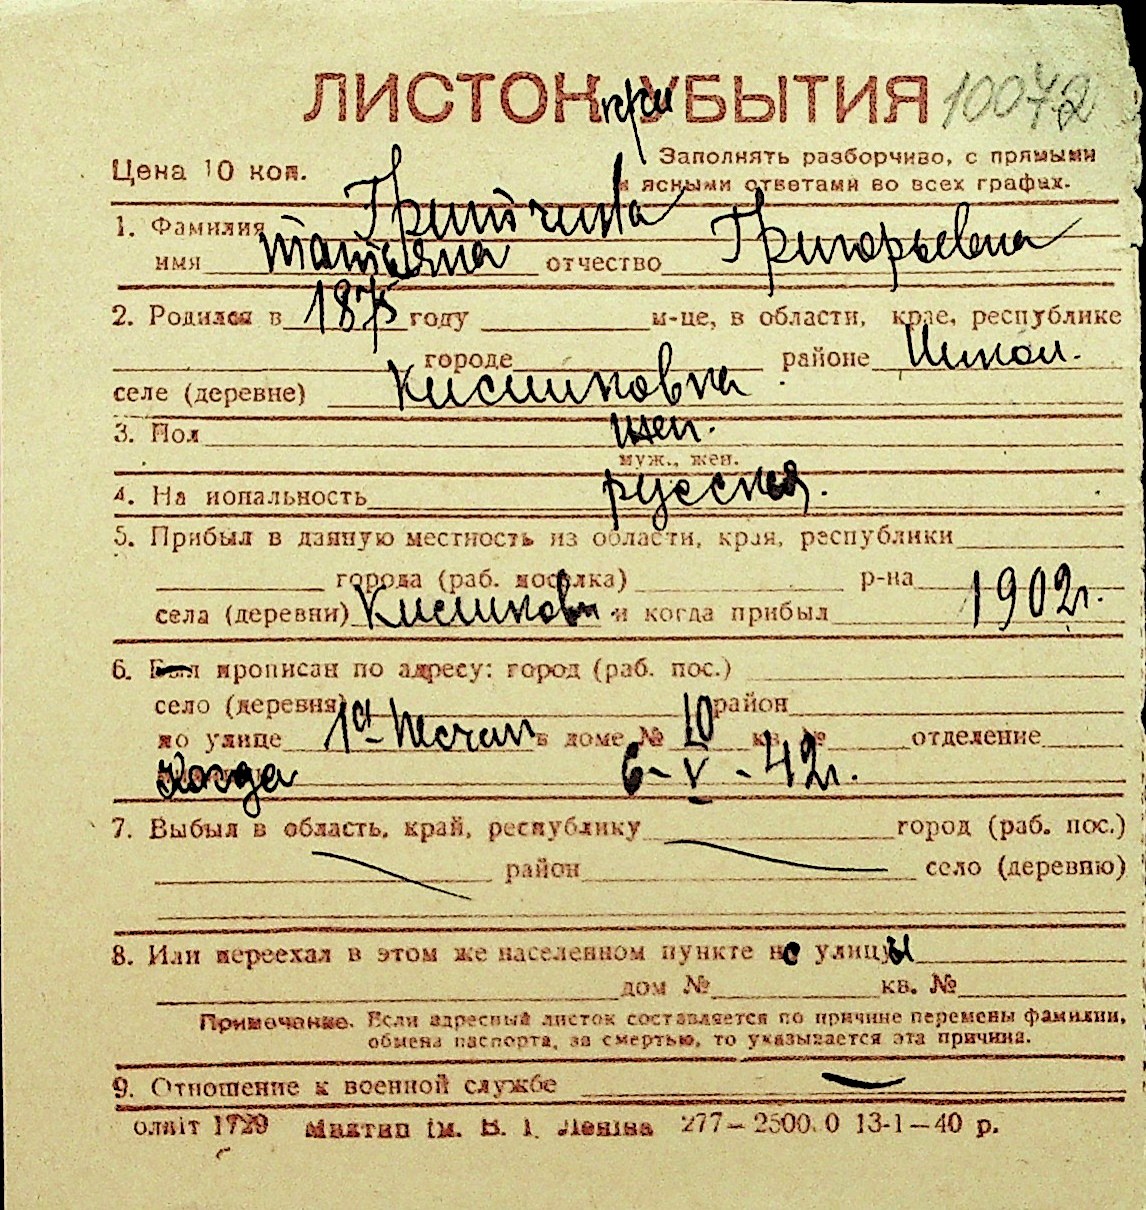 ЛИСТОК при УБЫТИЯ 10072
Цена 10 коп. Заполнять разборчиво, с прямыми
и ясными ответами во всех графах.
1. Фамилия
имя Татьяна отчество Григорьевна
2. Родился в 1875 году м-це, в области, крае, республике
городе районе
селе (деревне)
3. Пол жен.
муж., жен.
4. На иональность русская.
5. Прибыл в данную местность из области, края, республики
города (раб. поселка) р-на
села (деревни) и когда прибыл 1902г.
6. Был прописан по адресу: город (раб. пос.)
село (деревня) район
по улице 1а в доме № 10 кв. № отделение
Когда 6-V-42г.
7. Выбыл в область, край, республику город (раб. пос.)
район село (деревню)
8. Или переехал в этом же населенном пункте не улицы
дом № кв. №
Примечание. Если адресный листок составляется по причине перемены фамилии,
обмена паспорта, за смертью, то указывается эта причина.
9. Отношение к военной службе
олвіт 1729 Миктип ім. В. І. Леніна 277—2500.0 13-1—40 р.